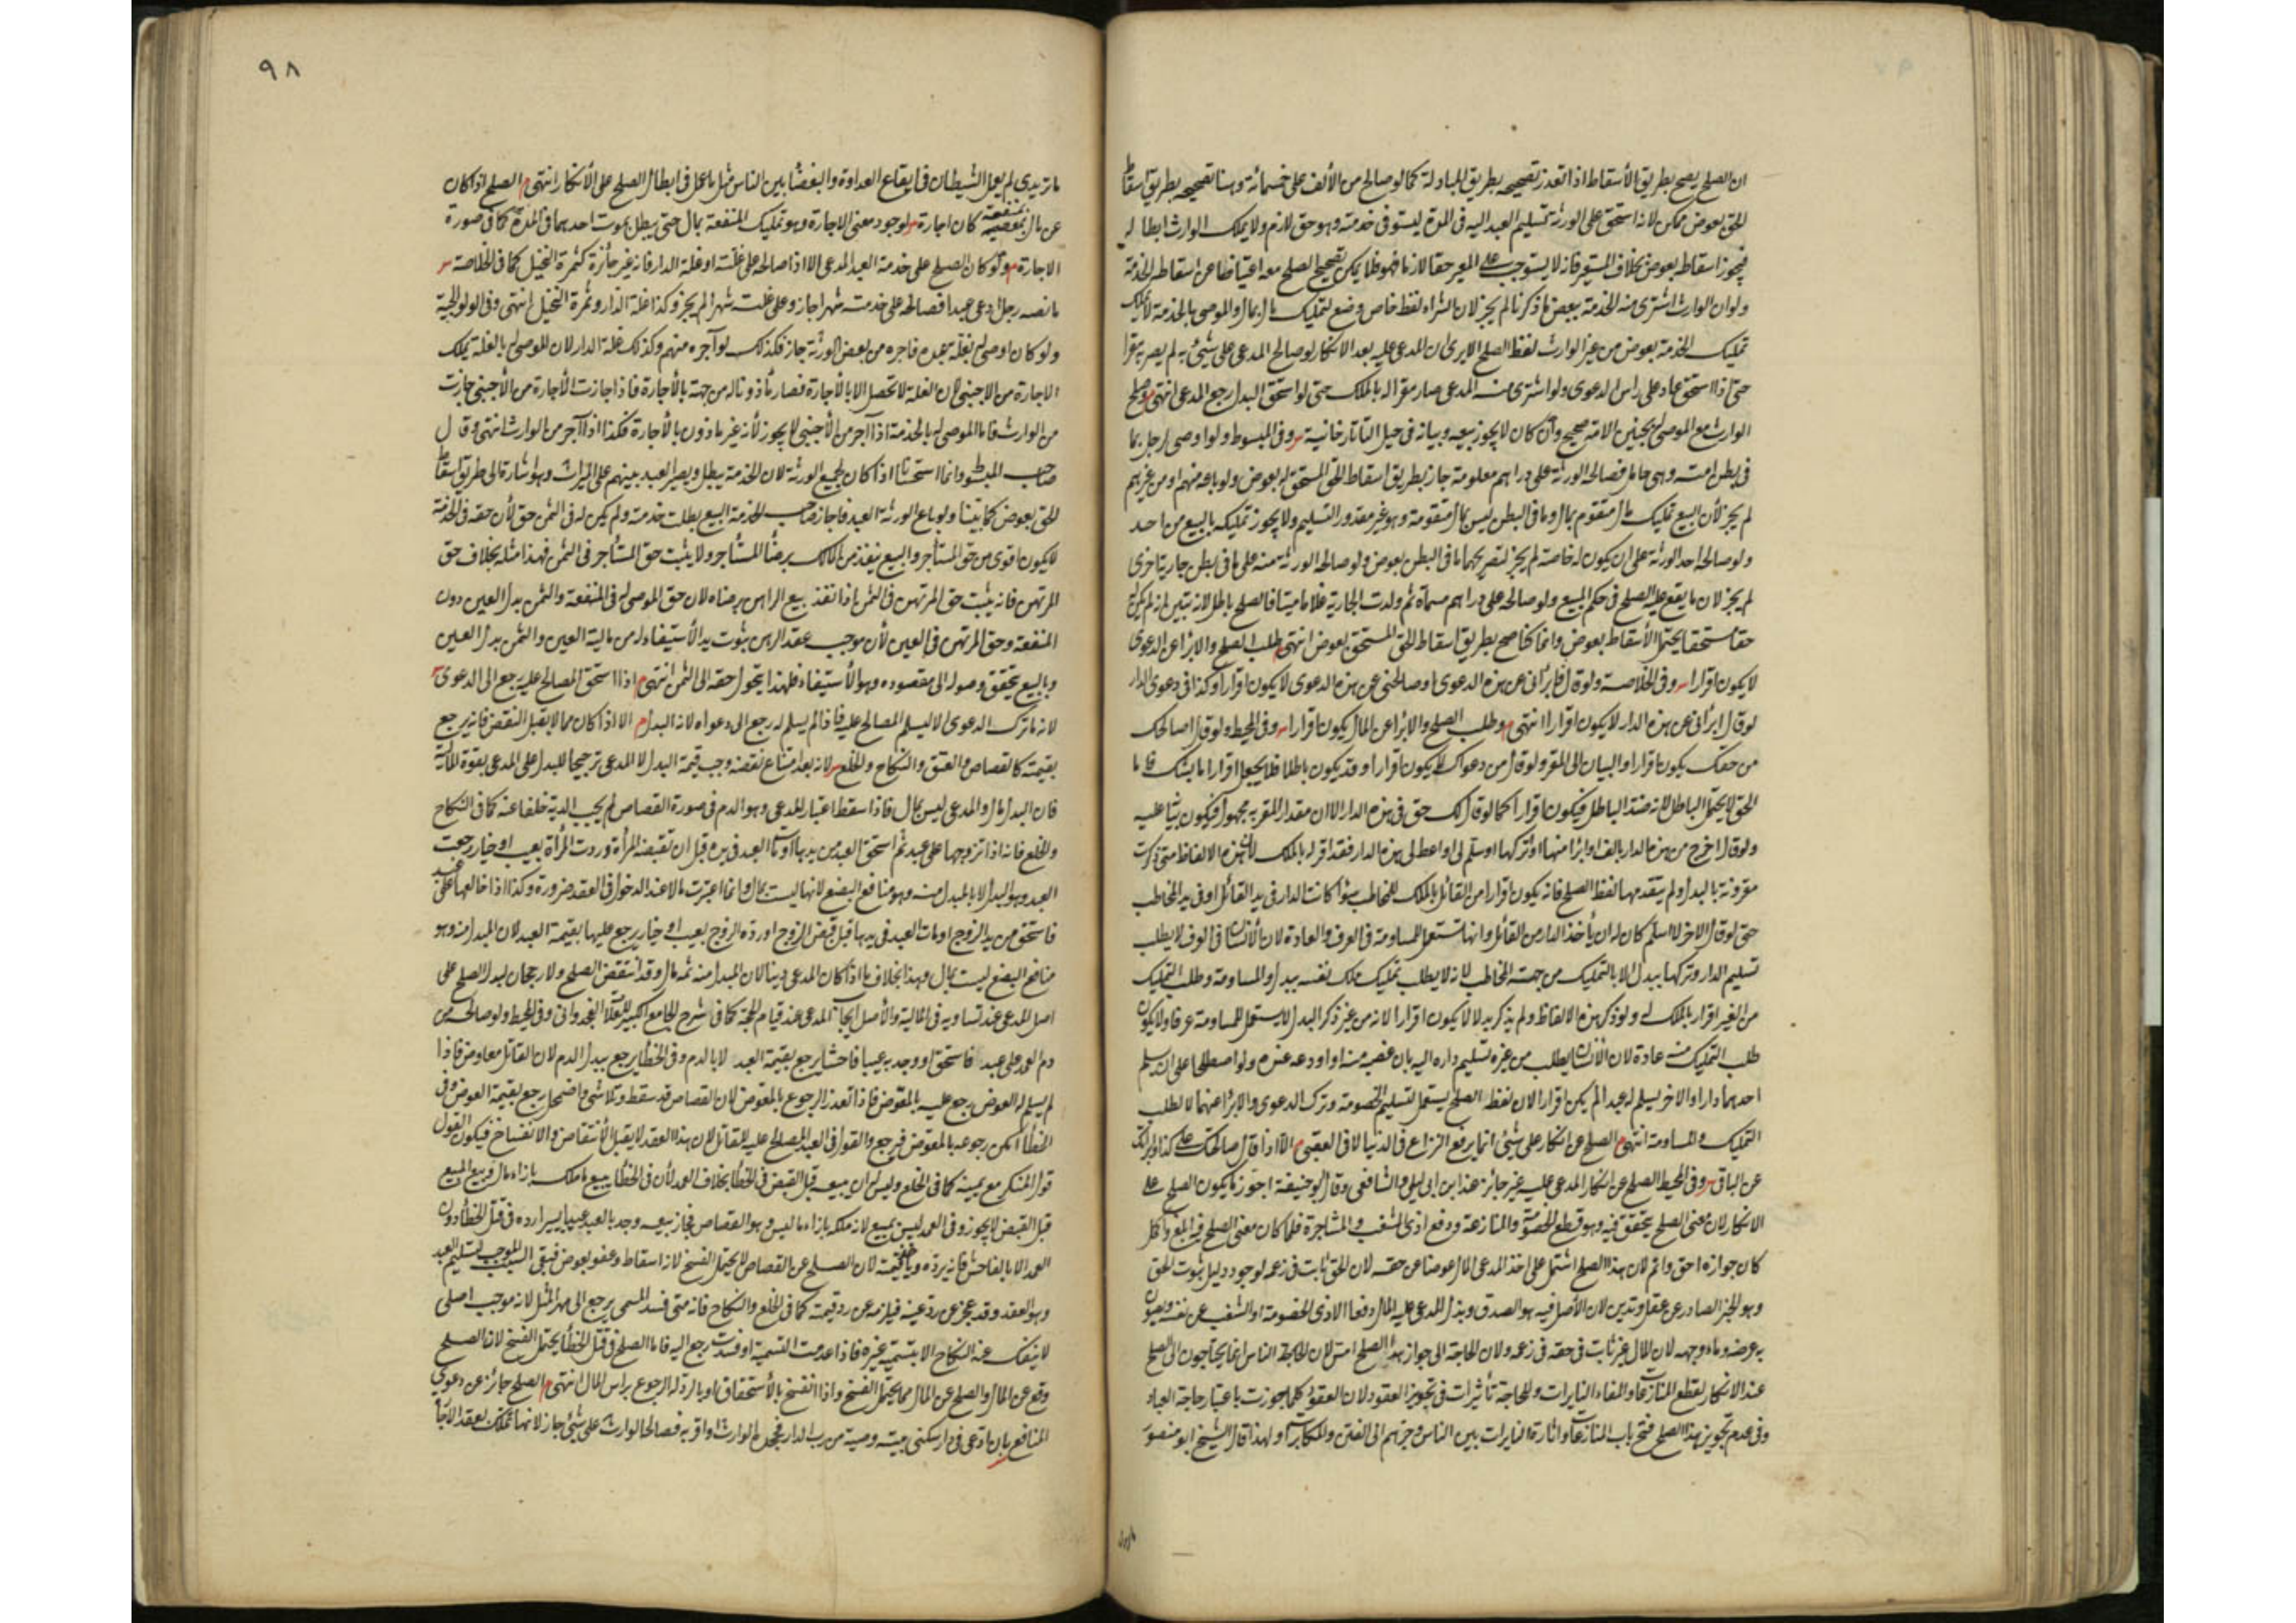 ان الصلح يصح بطريق الأسقاط اذا تعذر تصحيحه بطريق المبادلة كما لو صالح من الألف على خمسمائة وهنا تصحيحه بطريق اسقاط
الحق بعوض ممكن لانه استحق على الورثة تسليم العبد اليه فى المدة ليستوفى خدمته وهو حق لازم ولا يملك الوارث ابطاله
فيجوز اسقاطه بعوض بخلاف المستعير فانه لا يستوجب على المعير حقا لازما فهو ظ يمكن تصحيح الصلح معه اعتياضا عن اسقاط الخدمة
ولو ان الوارث اشترى منه الخدمة ببعض ما ذكرنا لم يجز لان الشراء لفظ خاص وضع لتمليك مال بمال والموصى بالخدمة لا يملك
تمليك الخدمة بعوض من غير الوارث لفظ الصلح الا يرى ان المدعى عليه بعد الانكار لو صالح المدعى على شئ به لم يصر مقرا
حتى اذا استحق عاد على راس الدعوى ولو اشترى منه المدعى صار مقرا له بالملك حتى لو استحق البدل رجع المدعى انتهى م صلح
الوارث مع الموصى له بجنين الامة صحيح وان كان لا يجوز بيعه وبيانه فى حيل التاتارخانية وفى المبسوط ولو اوصى لرجل بما
فى بطن امته وهى حامل فصالحه الورثة على دراهم معلومة جاز بطريق اسقاط الحق المستحق له بعوض ولو باعه منهم او من غيرهم
لم يجز لأن البيع تمليك مال متقوم بمال وما فى البطن ليس بمال متقومة وهو غير مقدور التسليم ولا يجوز تمليكه بالبيع من احد
ولو صالحه احد الورثة على ان يكون له خاصة لم يجز لتصريحهما ما فى البطن بعوض ولو صالحه الورثة منه على ما فى بطن جارية اخرى
لم يجز لان ما يقع عليه الصلح فى حكم المبيع ولو صالحه على دراهم مسماة ثم ولدت الجارية غلاما ميتا فالصلح باطل لانه تبين انه لم يكن
حقا مستحقا يحتمل الأسقاط بعوض وانما كنا صح بطريق اسقاط الحق المستحق بعوض انتهى م طلب الصلح والابراء عن الدعوى
لا يكون اقرارا وفى الخلاصة ولو قال ابرائنى عن هذه الدعوى او صالحنى عن هذه الدعوى لا يكون اقرارا وكذا فى دعوى الدار
لو قال ابرأنى عن هذه الدار لا يكون اقرارا انتهى م وطلب الصلح والابراء عن المال يكون اقرارا وفى المحيط ولو قال اصالحك
من حقك يكون اقرارا والبيان الى المقر ولو قال من دعواك لا يكون اقرارا وقد يكون باطلا فلا يجعل اقرارا بالشك فاما
الحق لا يحتمل الباطل لانه ضد الباطل فيكون اقرارا كما لو قال لك حق فى هذه الدار الا ان مقدار المقر به مجهول فيكون بيانه عليه
ولو قال اخرج من هذه الدار بالف او ابرا منها او اتركها او سلم لى او اعطى لى هذه الدار فقد اقر له بالملك لأن هذه الالفاظ متى ذكرت
مقرونة بالبدل ولم يتقدمها لفظ الصلح فانه يكون اقرارا من القائل بالملك للمخاطب سواء كانت الدار فى يد القائل او فى يد المخاطب
حتى لو قال الاخر لا اسلم كان له ان يأخذ الدار من القائل وانها تستعمل للمساومة فى العرف والعادة لان الأنسان فى العرف لا يطلب
تسليم الدار وتركها ببدل الا بالتمليك من جهته المخاطب لانه لا يطلب تمليك ملك نفسه ببدل والمساومة وطلب التمليك
من الغير اقرار بالملك له ولو ذكر هذه الالفاظ ولم يذكر بدلا لا يكون اقرارا لانه من غير ذكر البدل لا يستعمل للمساومة عرفا ولا يكون
طلب التمليك منه عادة لان الأنسان يطلب من غيره تسليم داره اليه بان غصبه منه او اودعه عنده ولو اصطلحا على ان يسلم
احدهما دارا والاخر يسلم له عبدا لم يكن اقرارا لان لفظ الصلح يستعمل لتسليم الخصومة وترك الدعوى والابراء عنهما لا لطلب
التمليك والمساومة انتهى م الصلح عن انكار على شئ انما يرفع النزاع فى الدنيا لا فى العقبى م الا اذا قال صالحتك على كذا وابرأتك
عن الباقى وفى المحيط الصلح عن انكار المدعى عليه غير جائز عند ابن ابى ليلى والشافعى وقال ابو حنيفة اجوز ما يكون الصلح على
الانكار لان معنى الصلح يتحقق فيه وهو قطع الخصومة والمنازعة ودفع اذى الشغب والمشاجرة فلما كان معنى الصلح فيه ابلغ واكمل
كان جوازه احق واتم لان هذا الصلح اشتمل على اخذ المدعى المال عوضا عن حقه لان الحق ثابت فى زعمه لوجود دليل ثبوت الحق
وهو الخبر الصادر عن عقل وتدين لان الأصل فيه هو الصدق وبذل المدعى عليه المال دفعا لاذى الخصومة والشغب عن نفسه ويصون
به عرضه وماء وجهه لان المال غير ثابت فى حقه فى زعمه ولان الحاجة الى جواز هذا الصلح امس لان الحاجة الناس انما يحتاجون الى الصلح
عند الانكار لقطع المنازعات واطفاء النايرات وللحاجة تأثيرات فى تجويز العقود لان العقود كلها جوزت باعتبار حاجة العباد
وفى عدم تجويز هذا الصلح فتح باب المنازعات واثارة النايرات بين الناس وجرتهم الى الفتن والمكابرات ولهذا قال الشيخ ابو منصور
٩٨
ماتريدى لم يعمل الشيطان فى ايقاع العداوة والبغضاء بين الناس مثل ما عمل فى ابطال الصلح على الأنكار انتهى م الصلح اذا كان
عن مال بمنفعة كان اجارة لوجود معنى الاجارة وهو تمليك المنفعة بمال حتى يبطل بموت احدهما فى المدة كما فى صورة
الاجارة م ولو كان الصلح على خدمة العبد المدعى الا اذا صالحه على غلته او غلة الدار فانه غير جائزة كثمرة النخيل كما فى الخلاصة
ما نصه رجل ادعى عبدا فصالحه على خدمته شهرا جاز وعلى غلته شهرا لم يجز وكذا غلة الدار وثمرة النخيل انتهى وفى الولوالجية
ولو كان اوصى له بغلة عبده فاجره من بعض الورثة جاز فكذلك لو آجره منهم وكذلك غلة الدار لان الموصى له بالغلة يملك
الاجارة من الاجنبى لان الغلة لا تحصل الا بالأجارة فصار مأذونا له من جهته بالأجارة فاذا اجازت الأجارة من الأجنبى جازت
من الوارث فاما الموصى له بالخدمة اذا آجر من الأجنبى لا يجوز لأنه غير ماذون بالأجارة فكذا اذا آجر من الوارث انتهى وقال
صاحب المبسوط وانما استحسنا اذا كان لجميع الورثة لان الخدمة يبطل ويصير العبد بينهم على الميراث وهو اشارة الى طريق اسقاط
الحق بعوض كما بينا ولو باع الورثة العبد فاجاز صاحب الخدمة البيع بطلت خدمته ولم يكن له فى الثمن حق لأن حقه فى الخدمة
لا يكون اقوى من حق المستأجر والبيع ينفذ من المالك برضا المستأجر ولا يثبت حق المستأجر فى الثمن فهذا مثله بخلاف حق
المرتهن فانه يثبت حق المرتهن فى الثمن اذا نفذ بيع الراهن برضاه لان حق الموصى له فى المنفعة والثمن بدل العين دون
المنفعة وحق المرتهن فى العين لأن موجب عقد الرهن ثبوت يد الأستيفاء له من مالية العين والثمن بدل العين
وبالبيع يتحقق وصوله الى مقصوده وهو الأستيفاء فلهذا يتحول حقه الى الثمن انتهى م اذا استحق المصالح عليه رجع الى الدعوى
لانه ما ترك الدعوى الا ليسلم المصالح عليه فاذا لم يسلم له رجع الى دعواه لانه البدل م الا اذا كان مما لا يقبل النقض فانه يرجع
بقيمته كالقصاص والعتق والنكاح والخلع لانه بعد امتناع نقضه وجب قيمة البدل لا المدعى ترجيحا للبدل على المدعى بقوة المالية
فان البدل مال والمدعى ليس بمال فاذا سقط اعتبار المدعى وهو الدم فى صورة القصاص لم يجب الدية خلفا عنه كما فى النكاح
والخلع فانه اذا تزوجها على عبد ثم استحق العبد من يدها او مات العبد فى يده قبل ان تقبضه المرأة وردت المرأة بعيب او خيار رجعت
العبد وهو البدل لا بالمبدل منه وهو منافع البضع لانها ليست بمال وانما اعتبرت مالا عند الدخول فى العقد ضرورة وكذا اذا خالعها على عبد
فاستحق من يد الزوج او مات العبد فى يدها قبل قبض الزوج او رده الزوج بعيب او خيار يرجع عليها بقيمة العبد لان المبدل منه وهو
منافع البضع ليست بمال وهذا بخلاف ما اذا كان المدعى دينا لان المبدل منه ثمه مال وقد انتقض الصلح ولا رجحان لبدل الصلح على
اصل المدعى عند تساويه فى المالية والأصل ايجاب المدعى عند قيام الحجة كما فى شرح الجامع الكبير للعلاء الغجدوانى وفى المحيط ولو صالحه من
دم العمد على عبد فاستحق او وجد به عيبا فاحشا يرجع بقيمة العبد لا بالدم وفى الخطأ يرجع ببدل الدم لان القاتل معاوض فاذا
لم يسلم له العوض يرجع عليه بالمعوض فاذا تعذر الرجوع بالمعوض لان القصاص قد سقط وتلاشى واضمحل رجع بقيمة العوض وفى
الخطأ امكن رجوعه بالمعوض فيرجع والقول فى العبد المصالح عليه للقاتل لان هذا العقد لا يقبل الأنتقاض والانفساخ فيكون القول
قول المنكر مع يمينه كما فى الخلع وليس له ان يبيعه قبل القبض فى الخطأ بخلاف العمد لأن فى الخطأ يبيع ما ملكه بازاء مال وبيع المبيع
قبل القبض لا يجوز وفى العمد ليس بمبيع لانه ملكه بازاء ما ليس وهو القصاص فجاز بيعه وجد بالعبد عيبا يسيرا رده فى قتل الخطأ دون
العمد الا بالفاحش فانه يرده وياخذ قيمته لان الصلح عن القصاص لا يحتمل الفسخ لانه اسقاط وعفو بعوض فبقى السبب الموجب لتسليم العبد
وهو العقد وقد عجز عن رد عينه فيلزمه عن رد قيمته كما فى الخلع والنكاح فانه متى فسد المسمى يرجع الى مهر المثل لانه موجب اصلى
لا ينفك عنه النكاح الا بتسمية غيره فاذا عدمت التسمية او فسدت رجع اليه فاما الصلح فى قتل الخطأ يحتمل الفسخ لانه الصلح
وقع عن المال والصلح عن المال مما يحتمل الفسخ واذا انفسخ بالأستحقاق او بالرد له الرجوع براس المال انتهى م الصلح جائز عن دعوى
المنافع بان ادعى فى دار سكنى بيته وصية من رب الدار فجحده الوارث او اقر به فصالحه الوارث على شئ جاز لانها تملك بعقد الاجا